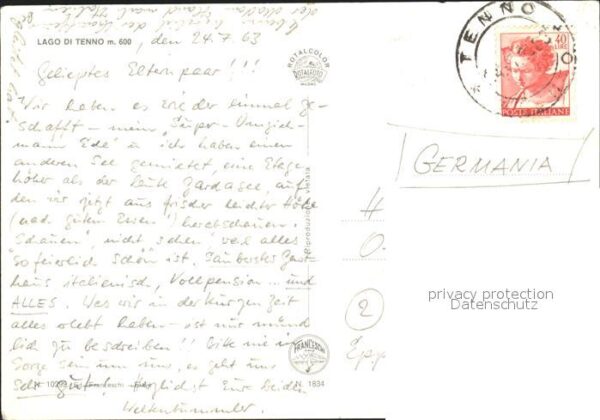 LAGO DI TENNO m. 600
, den 24.7.63
Geliebtes Elternpaar!!!
Wir haben es wieder einmal ge-
schafft - mein "Super-Umzieh-
mann Ede" u ich haben einen
anderen See gemietet, eine Etage
höher als der laute Gardasee, auf
den wir jetzt aus frischer leichter Höhe
(und guten Ewen) herabschauen.
"Schauen", nicht "sehen" weil alles
so feierlich schön ist. Sauberstes Gast-
haus italienisch, Vollpension... und
ALLES. Was wir in der kurzen Zeit
alles erlebt haben - ist nur münd-
lich zu beschreiben!! Bitte nie in
Sorge sein um uns, es geht uns
sehr gut! Herzlichst Eure beiden
Weltenbummler.
ROTALCOLOR
ROTALFOTO
MILANO
Riproduzione Vietata
N. 10292
N. 1834
TENNO
40
LIRE
POSTE ITALIANE
GERMANIA
H
O.
2
Epp
privacy protection
Datenschutz